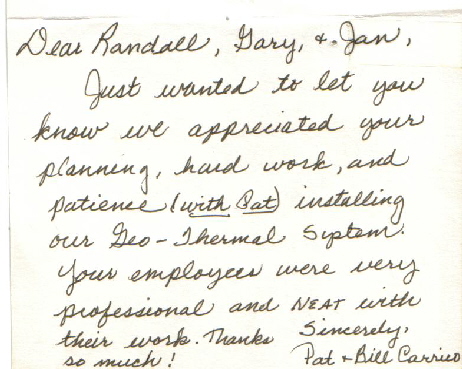 Dear Randall, Gary, & Jan,
Just wanted to let you
know we appreciated your
planning, hard work, and
patience (with Pat) installing
our Geo-Thermal System.
Your employees were very
professional and NEAT with
their work. Thanks Sincerely,
so much! Pat & Bill Carrico